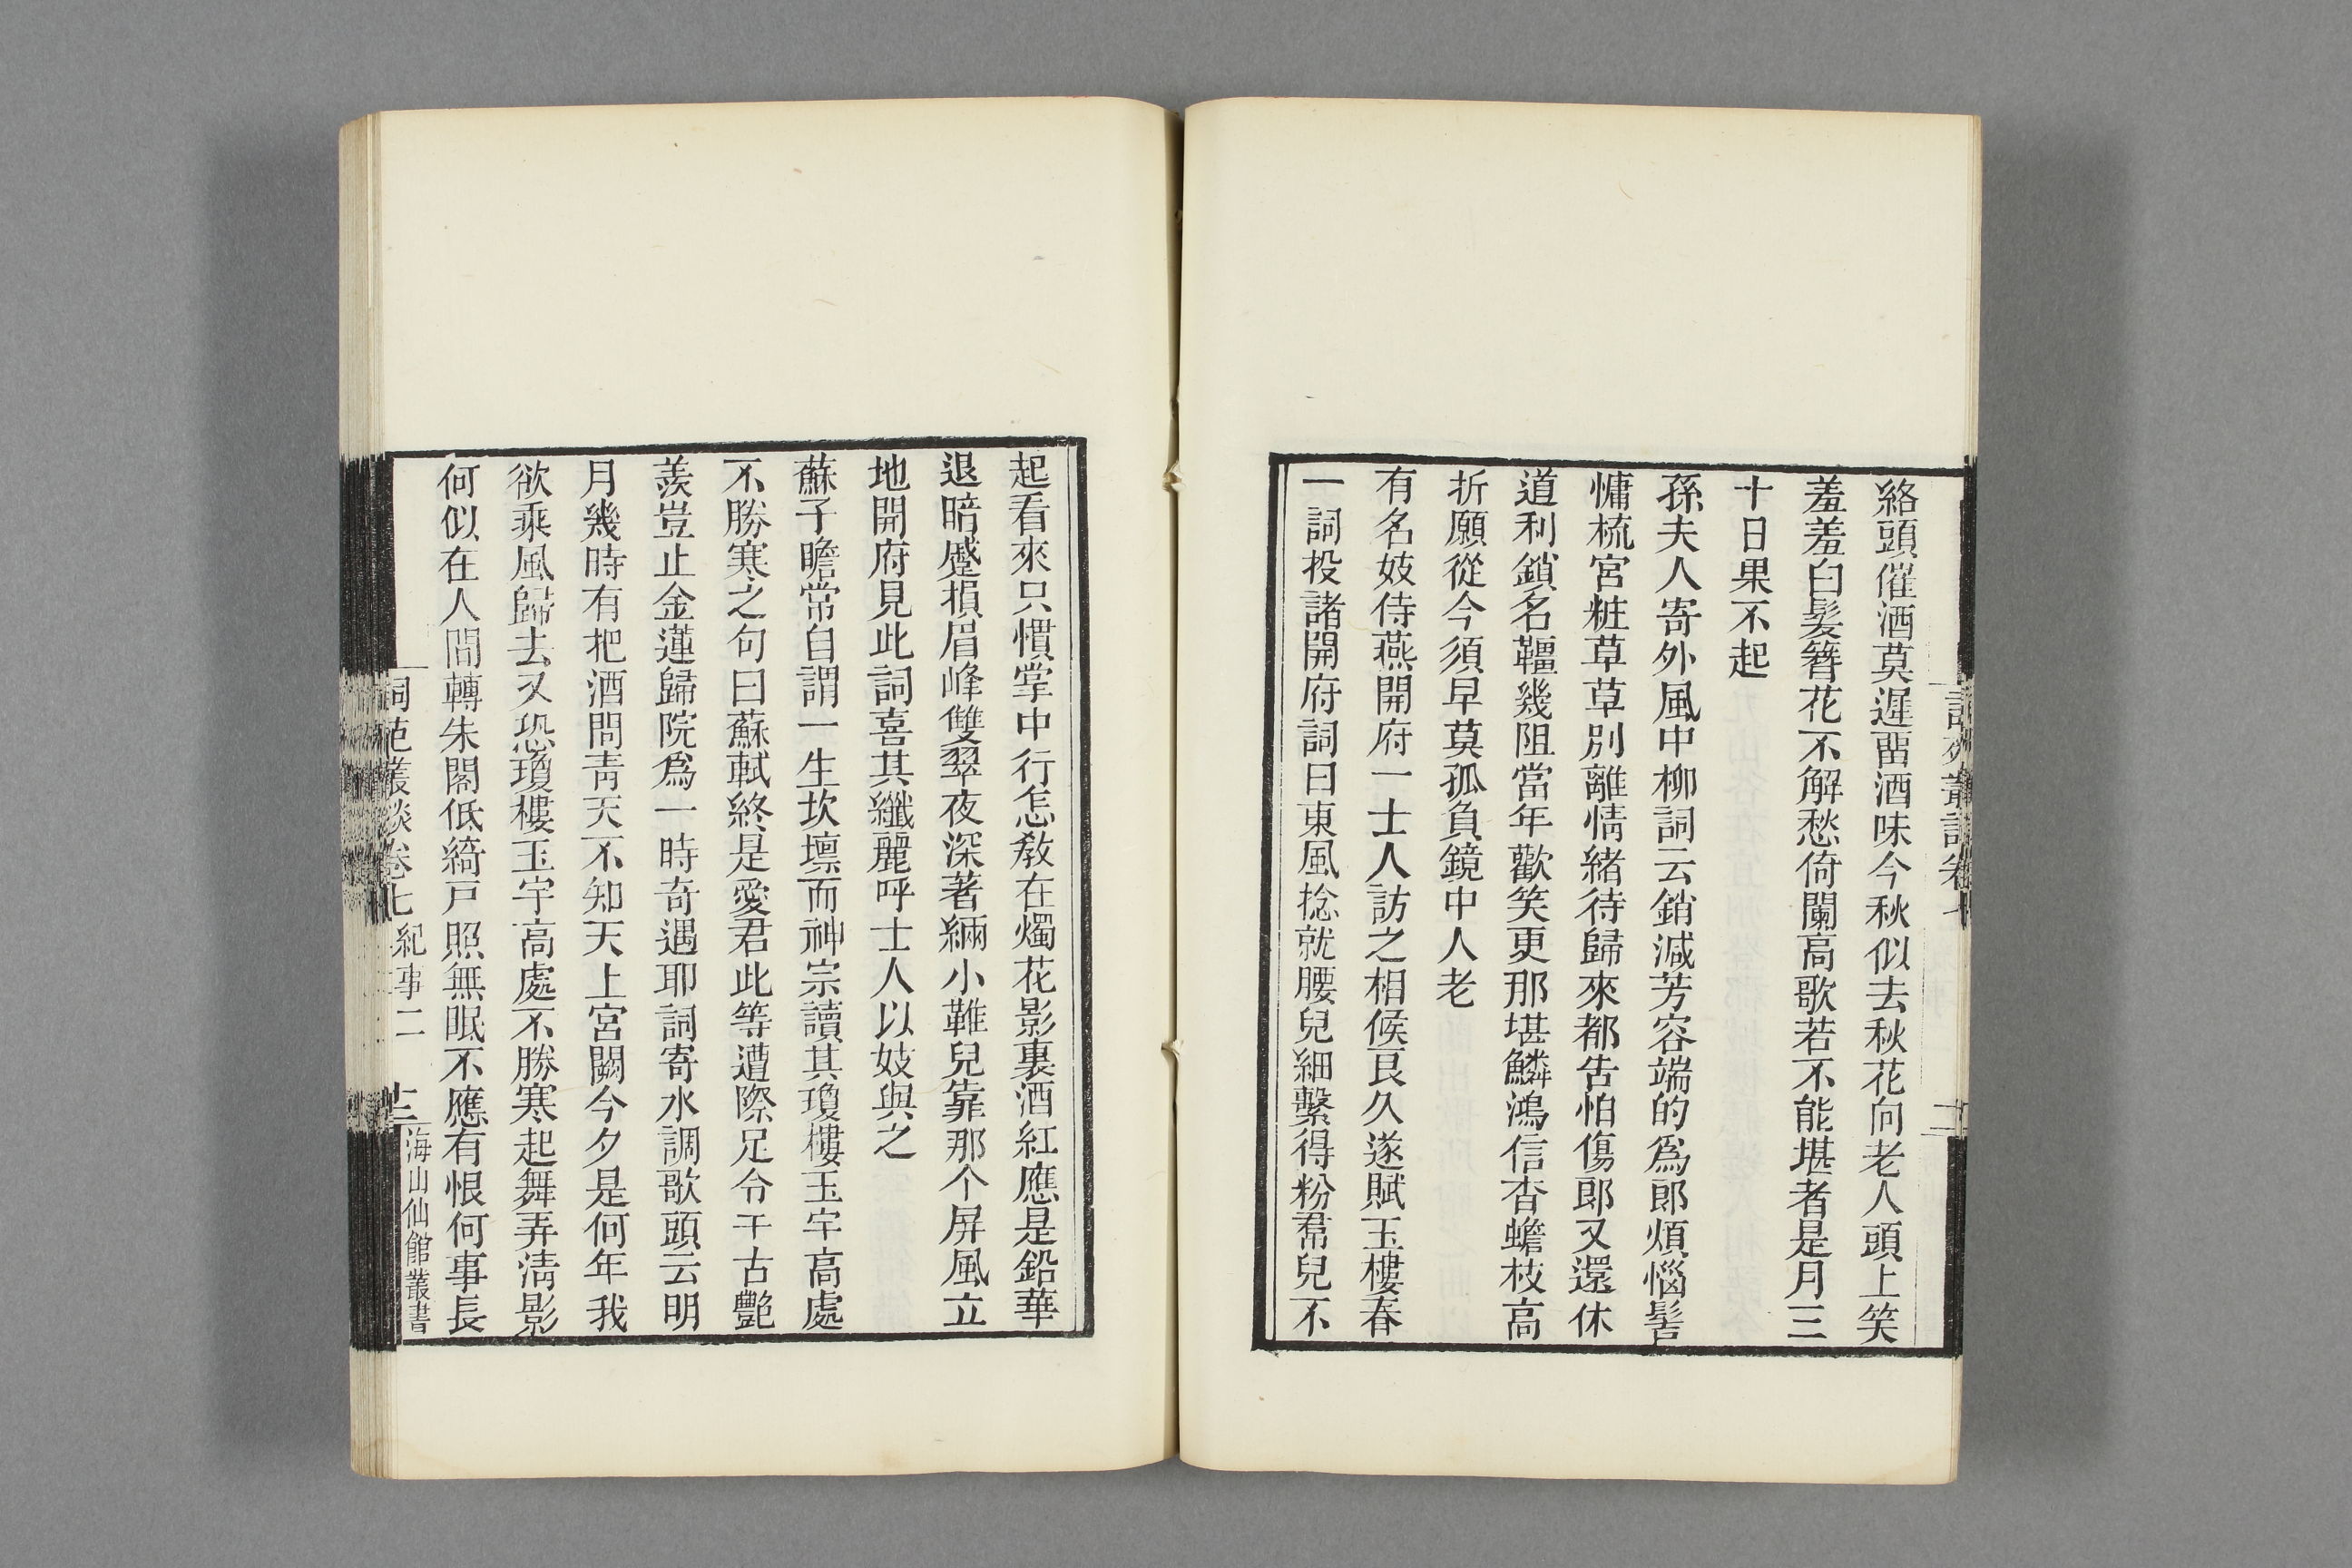 絡頭催酒莫遲畱酒味今秋似去秋花向老人頭上笑
羞羞白髮簪花不解愁倚闌高歌若不能堪者是月三
十日果不起
孫夫人寄外風中柳詞云銷減芳容端的爲郎煩惱髻
慵梳宮粧草草別離情緒待歸來都告怕傷郎又還休
道利鎖名韁幾阻當年歡笑更那堪鱗鴻信杳蟾枝高
折願從今須早莫孤負鏡中人老
有名妓侍燕開府一士人訪之相候良久遂賦玉樓春
一詞投諸開府詞曰東風捻就腰兒細繫得粉帬兒不
起看來只慣掌中行怎敎在燭花影裏酒紅應是鉛華
退暗蹙損眉峰雙翠夜深著緉小鞵兒靠那个屏風立
地開府見此詞喜其纖麗呼士人以妓與之
蘇子瞻常自謂一生坎壈而神宗讀其瓊樓玉宇高處
不勝寒之句曰蘇軾終是愛君此等遭際足令千古艷
羨豈止金蓮歸院爲一時奇遇耶詞寄水調歌頭云明
月幾時有把酒問青天不知天上宮闕今夕是何年我
欲乘風歸去又恐瓊樓玉宇高處不勝寒起舞弄清影
何似在人間轉朱閣低綺戸照無眠不應有恨何事長
詞苑叢談卷七 紀事二 海山仙館叢書